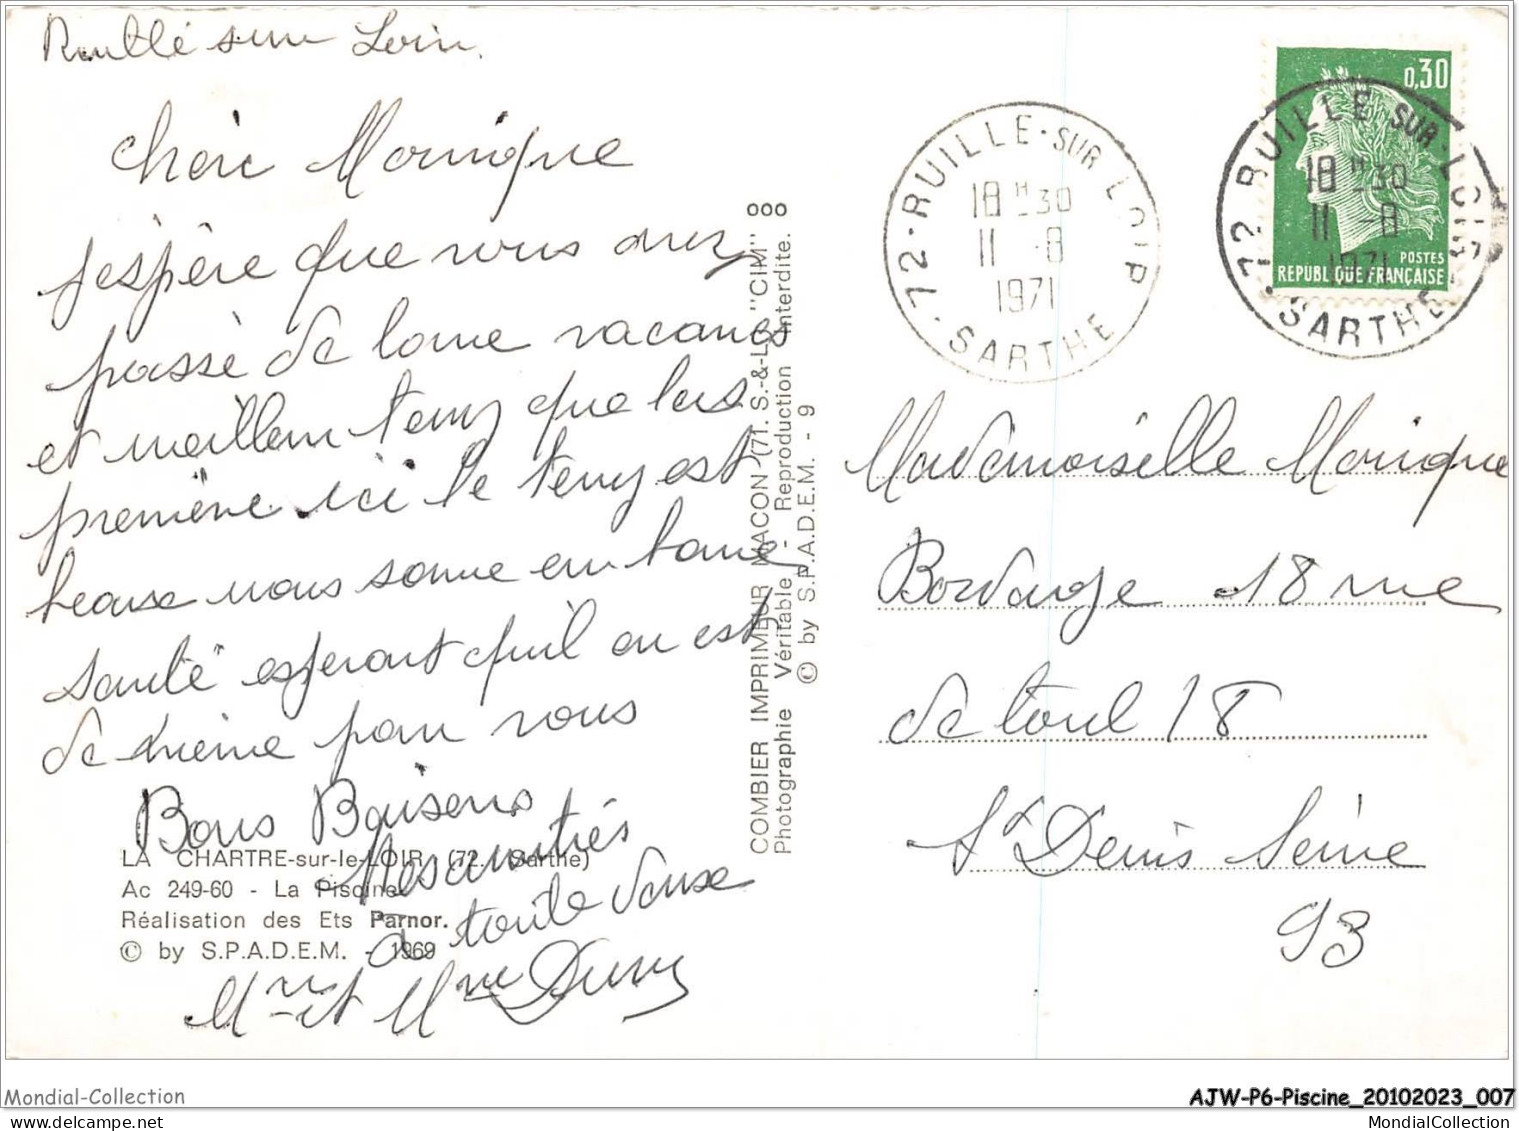 Ruillé sur Loir
chère Monique
j'espère que vous avez
passé de bonne vacances
et meilleur temps que les
première ici le temps est
beaux nous somme en bonne
santé esperant qu'il en est
de même pour vous
Bons Baisers
Mes amitiés
a toute
Mr et Mme
LA CHARTRE-sur-le-LOIR (72. - Sarthe)
Ac 249-60 - La Piscine
Réalisation des Ets Parnor.
© by S.P.A.D.E.M. - 1969
COMBIER IMPRIMEUR MACON (71. S.-&-L.) "CIM" ooo
Photographie Véritable - Reproduction Interdite.
© by S.P.A.D.E.M. - 9
72 - RUILLE-SUR-LOIR
18H30
11 -8
1971
SARTHE
0,30
POSTES
REPUBLIQUE FRANÇAISE
72 RUILLE SUR-LOIR
18H30
11 -8
1971
SARTHE
Mademoiselle Monique
18 rue
de toul 18
St Denis Seine
93
Mondial-Collection
AJW-P6-Piscine_20102023_007
MondialCollection